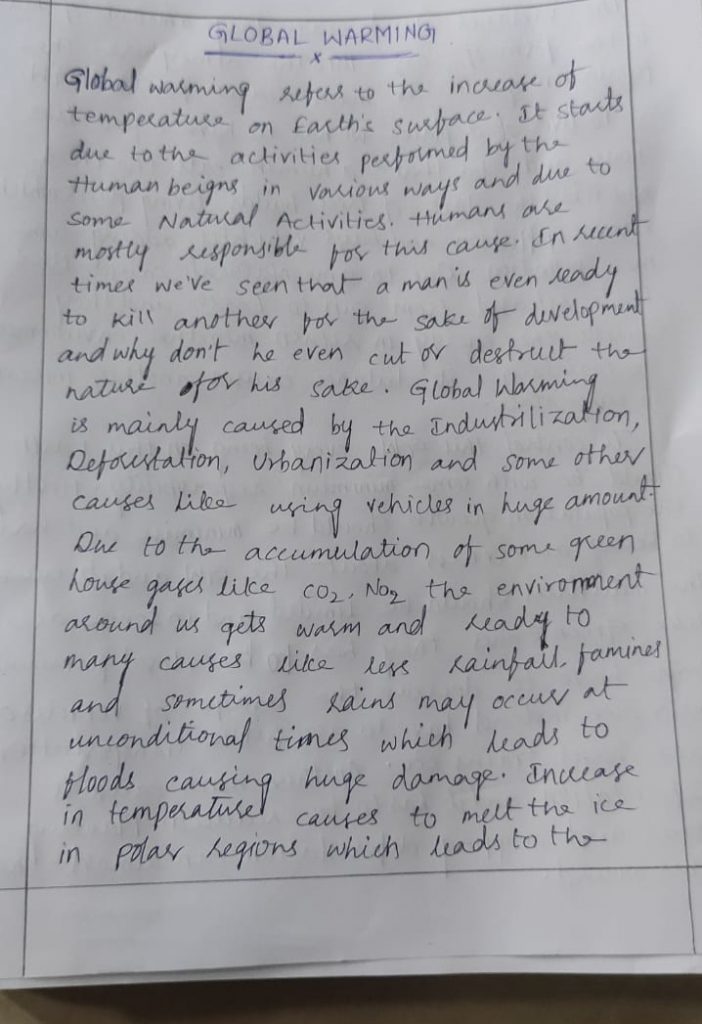 GLOBAL WARMING
x
Global warming refers to the increase of
temperature on Earth's surface. It starts
due to the activities performed by the
Human beigns in various ways and due to
Some Natural Activities. Humans are
mostly responsible for this cause. In recent
times we've seen that a man is even ready
to kill another for the sake of development
and why don't he even cut or destruct the
nature for his sake. Global Warming
is mainly caused by the Industrilization,
Deforestation, Urbanization and some other
causes like using vehicles in huge amount.
Due to the accumulation of some green
house gases like CO2, NO2 the environment
around us gets warm and ready to
many causes like less rainfall, famines
and sometimes rains may occur at
unconditional times which leads to
floods causing huge damage. Increase
in temperature causes to melt the ice
in polar regions which leads to the